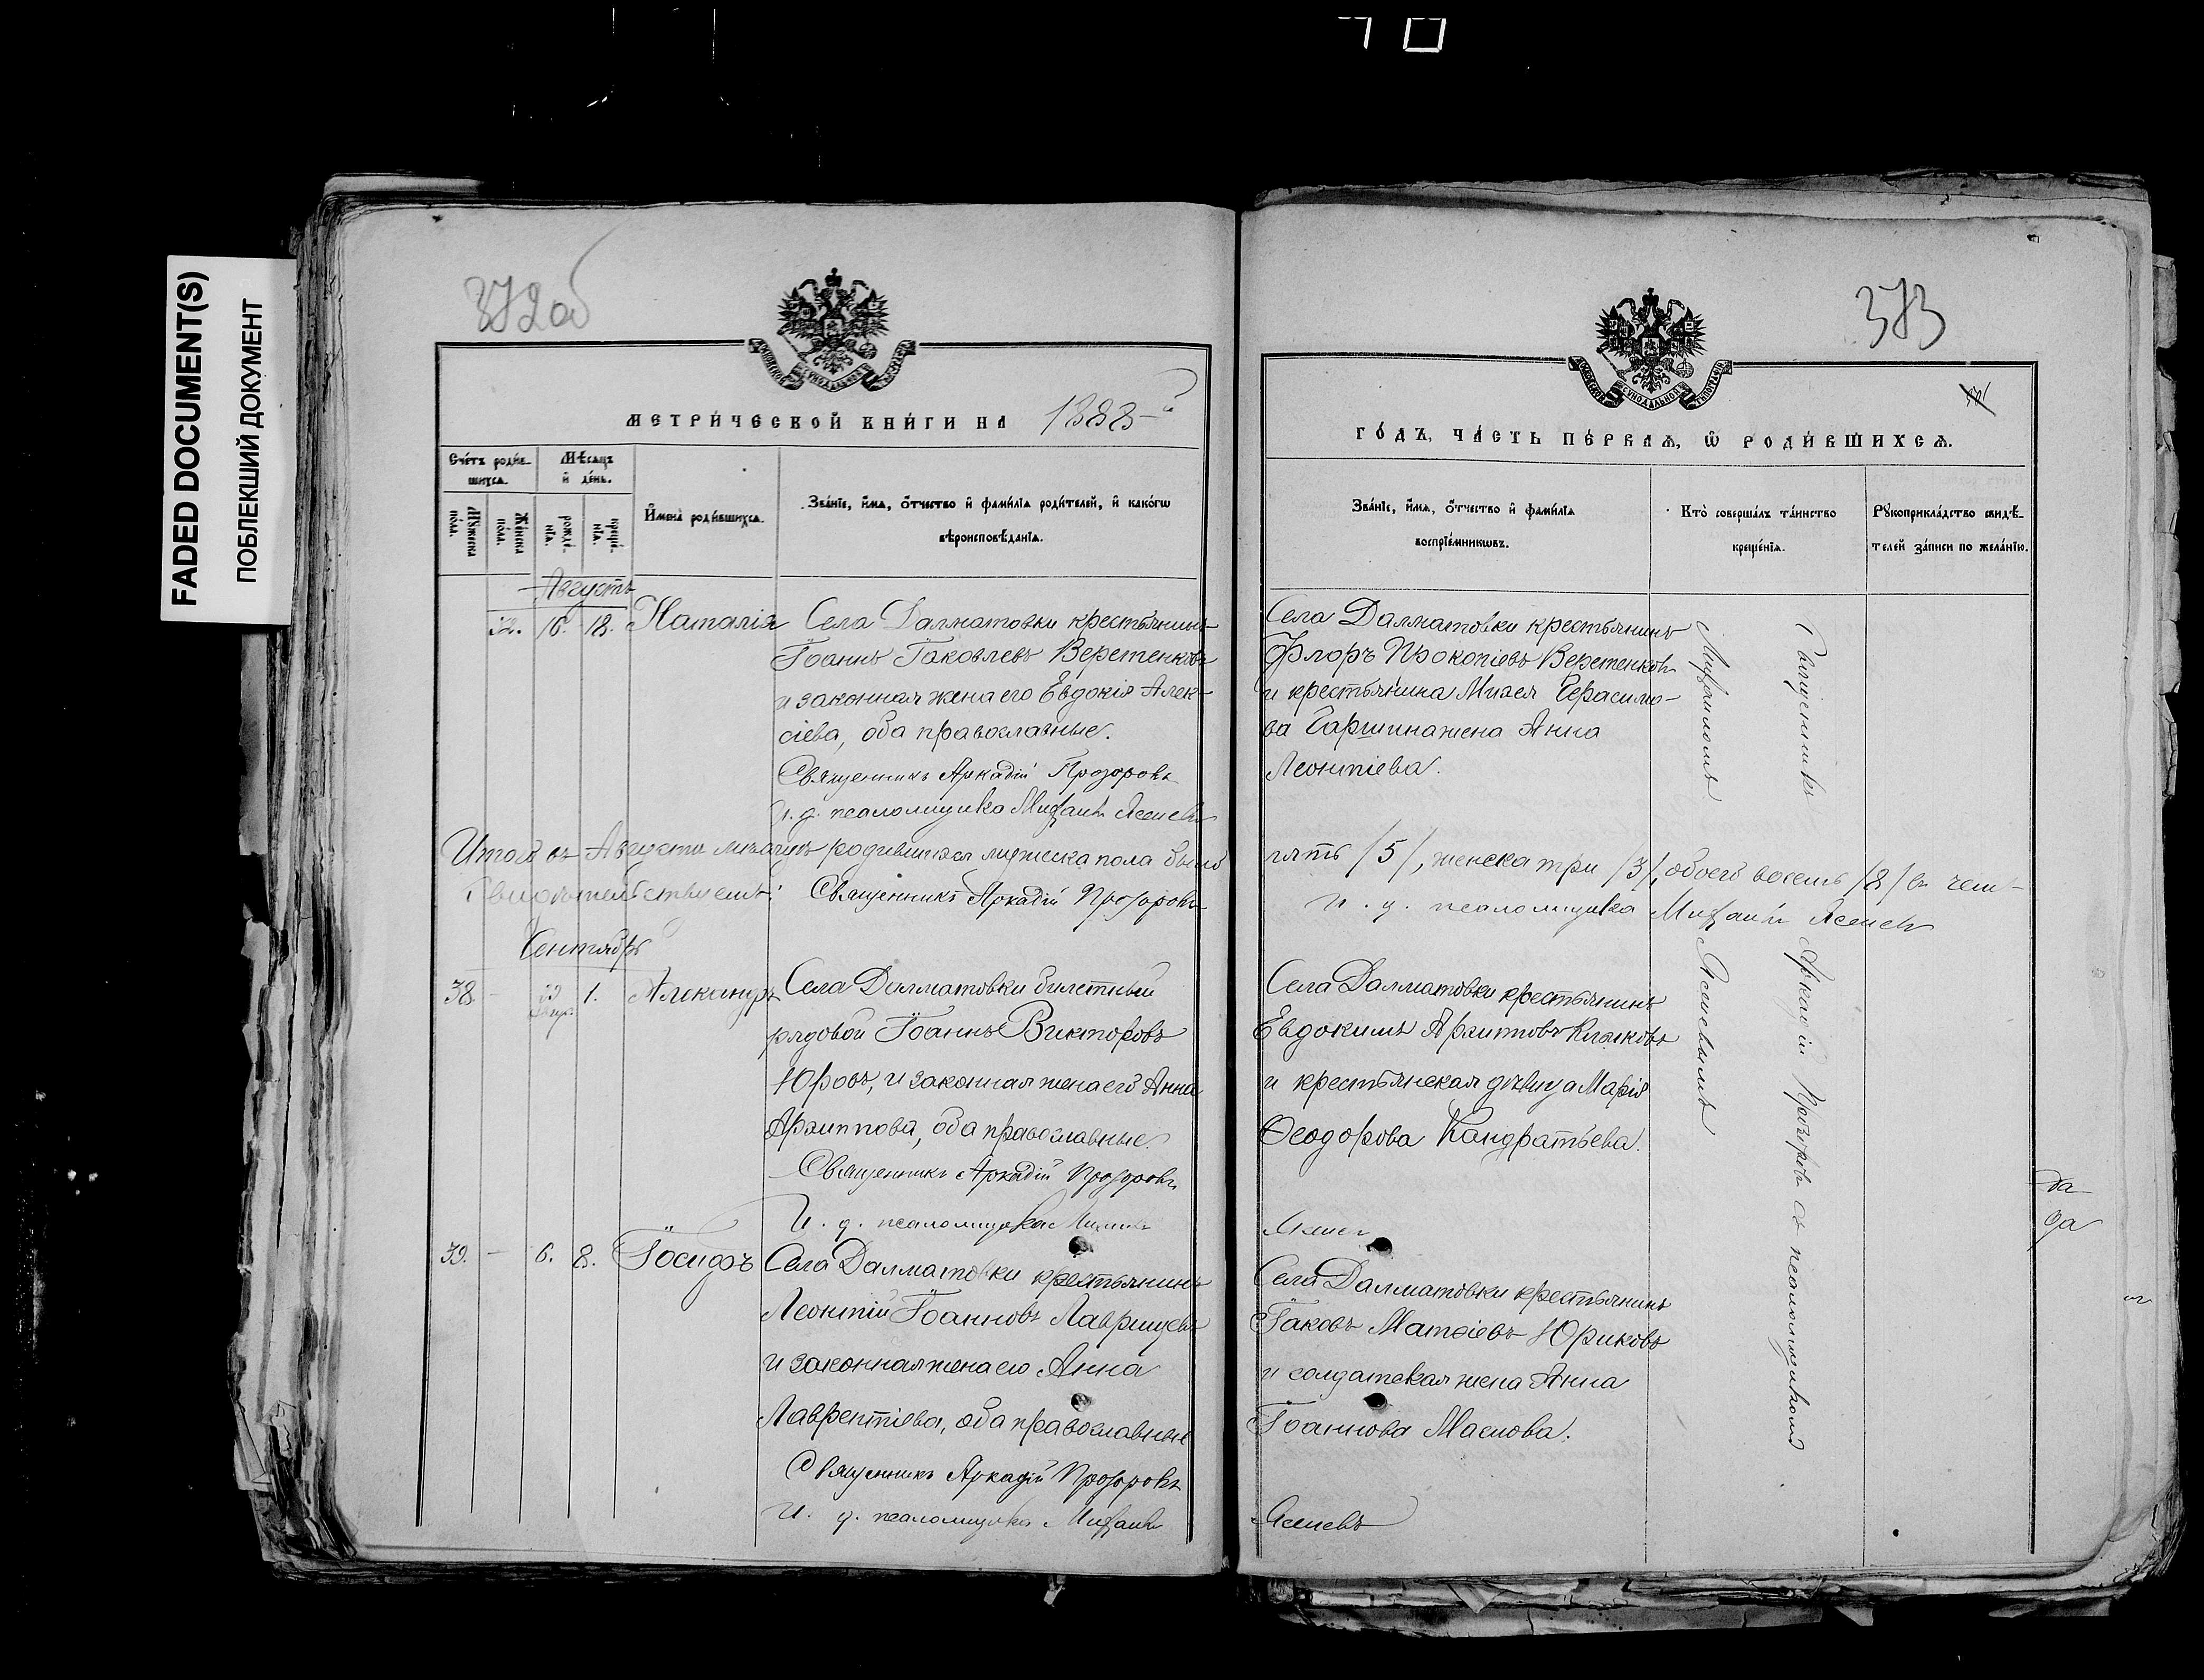 FADED DOCUMENT(S)
ПОБЛЕКШИЙ ДОКУМЕНТ
372об
МЕТРИЧЕСКОЙ КНИГИ НА 1888-й
Счетъ родив-
шихся.
Мѣсяцъ
и день.
Мужеска
пола.
Женска
пола.
рожде-
нія.
креще-
нія.
Имена родившихся.
Званіе, имя, отчество и фамилія родителей, и какогѡ
вѣроисповѣданія.
Августъ
32. 16. 18. Наталія Села Далматовки крестьянинъ
Іоаннъ Іаковлевъ Веретенковъ
и законная жена его Евдокія Алек-
сіева, оба православные.
Священникъ Аркадій Прозоровъ
И. д. псаломщика Михаилъ
Итого въ Августѣ мѣсяцѣ родившихся мужеска пола было
Свидѣтельствуемъ: Священникъ Аркадій Прозоровъ
Сентябрь
38. - 29 Авгус. 1. Александръ Села Далматовки билетный
рядовой Іоаннъ Викторовъ
Юровъ, и законная жена его Анна
Архиппова, оба православные
Священникъ Аркадій Прозоровъ
И. д. псаломщика Михаилъ
39. - 6. 8. Іосифъ Села Далматовки крестьянинъ
Леонтій Іоанновъ Лаврищевъ
и законная жена его Анна
Лаврентіева, оба православные
Священникъ Аркадій Прозоровъ
И. д. псаломщика Михаилъ
373
ГОДЪ, ЧАСТЬ ПЕРВАЯ, Ѡ РОДИВШИХСЯ.
Званіе, имя, отчество и фамилія
воспріемниковъ.
Кто совершалъ таинство
крещенія.
Рукоприкладство свидѣ-
телей записи по желанію.
Села Далматовки крестьянинъ
Флоръ Прокопіевъ Веретенковъ
и крестьянина Михея Герасимо-
ва Гаршина жена Анна
Леонтіева.
пять /5/, женска три /3/, обоего восемь /8/ въ чемъ-
И. д. псаломщика Михаилъ
Села Далматовки крестьянинъ
Евдокимъ Архиповъ
и крестьянская дѣвица Марія
Ѳеодорова Кандратьева.
Села Далматовки крестьянинъ
Іаковъ Матѳіевъ Юриковъ
и солдатская жена Анна
Іоаннова Маслова.
Священникъ Аркадій Прозоровъ съ псаломщикомъ
Михаиломъ